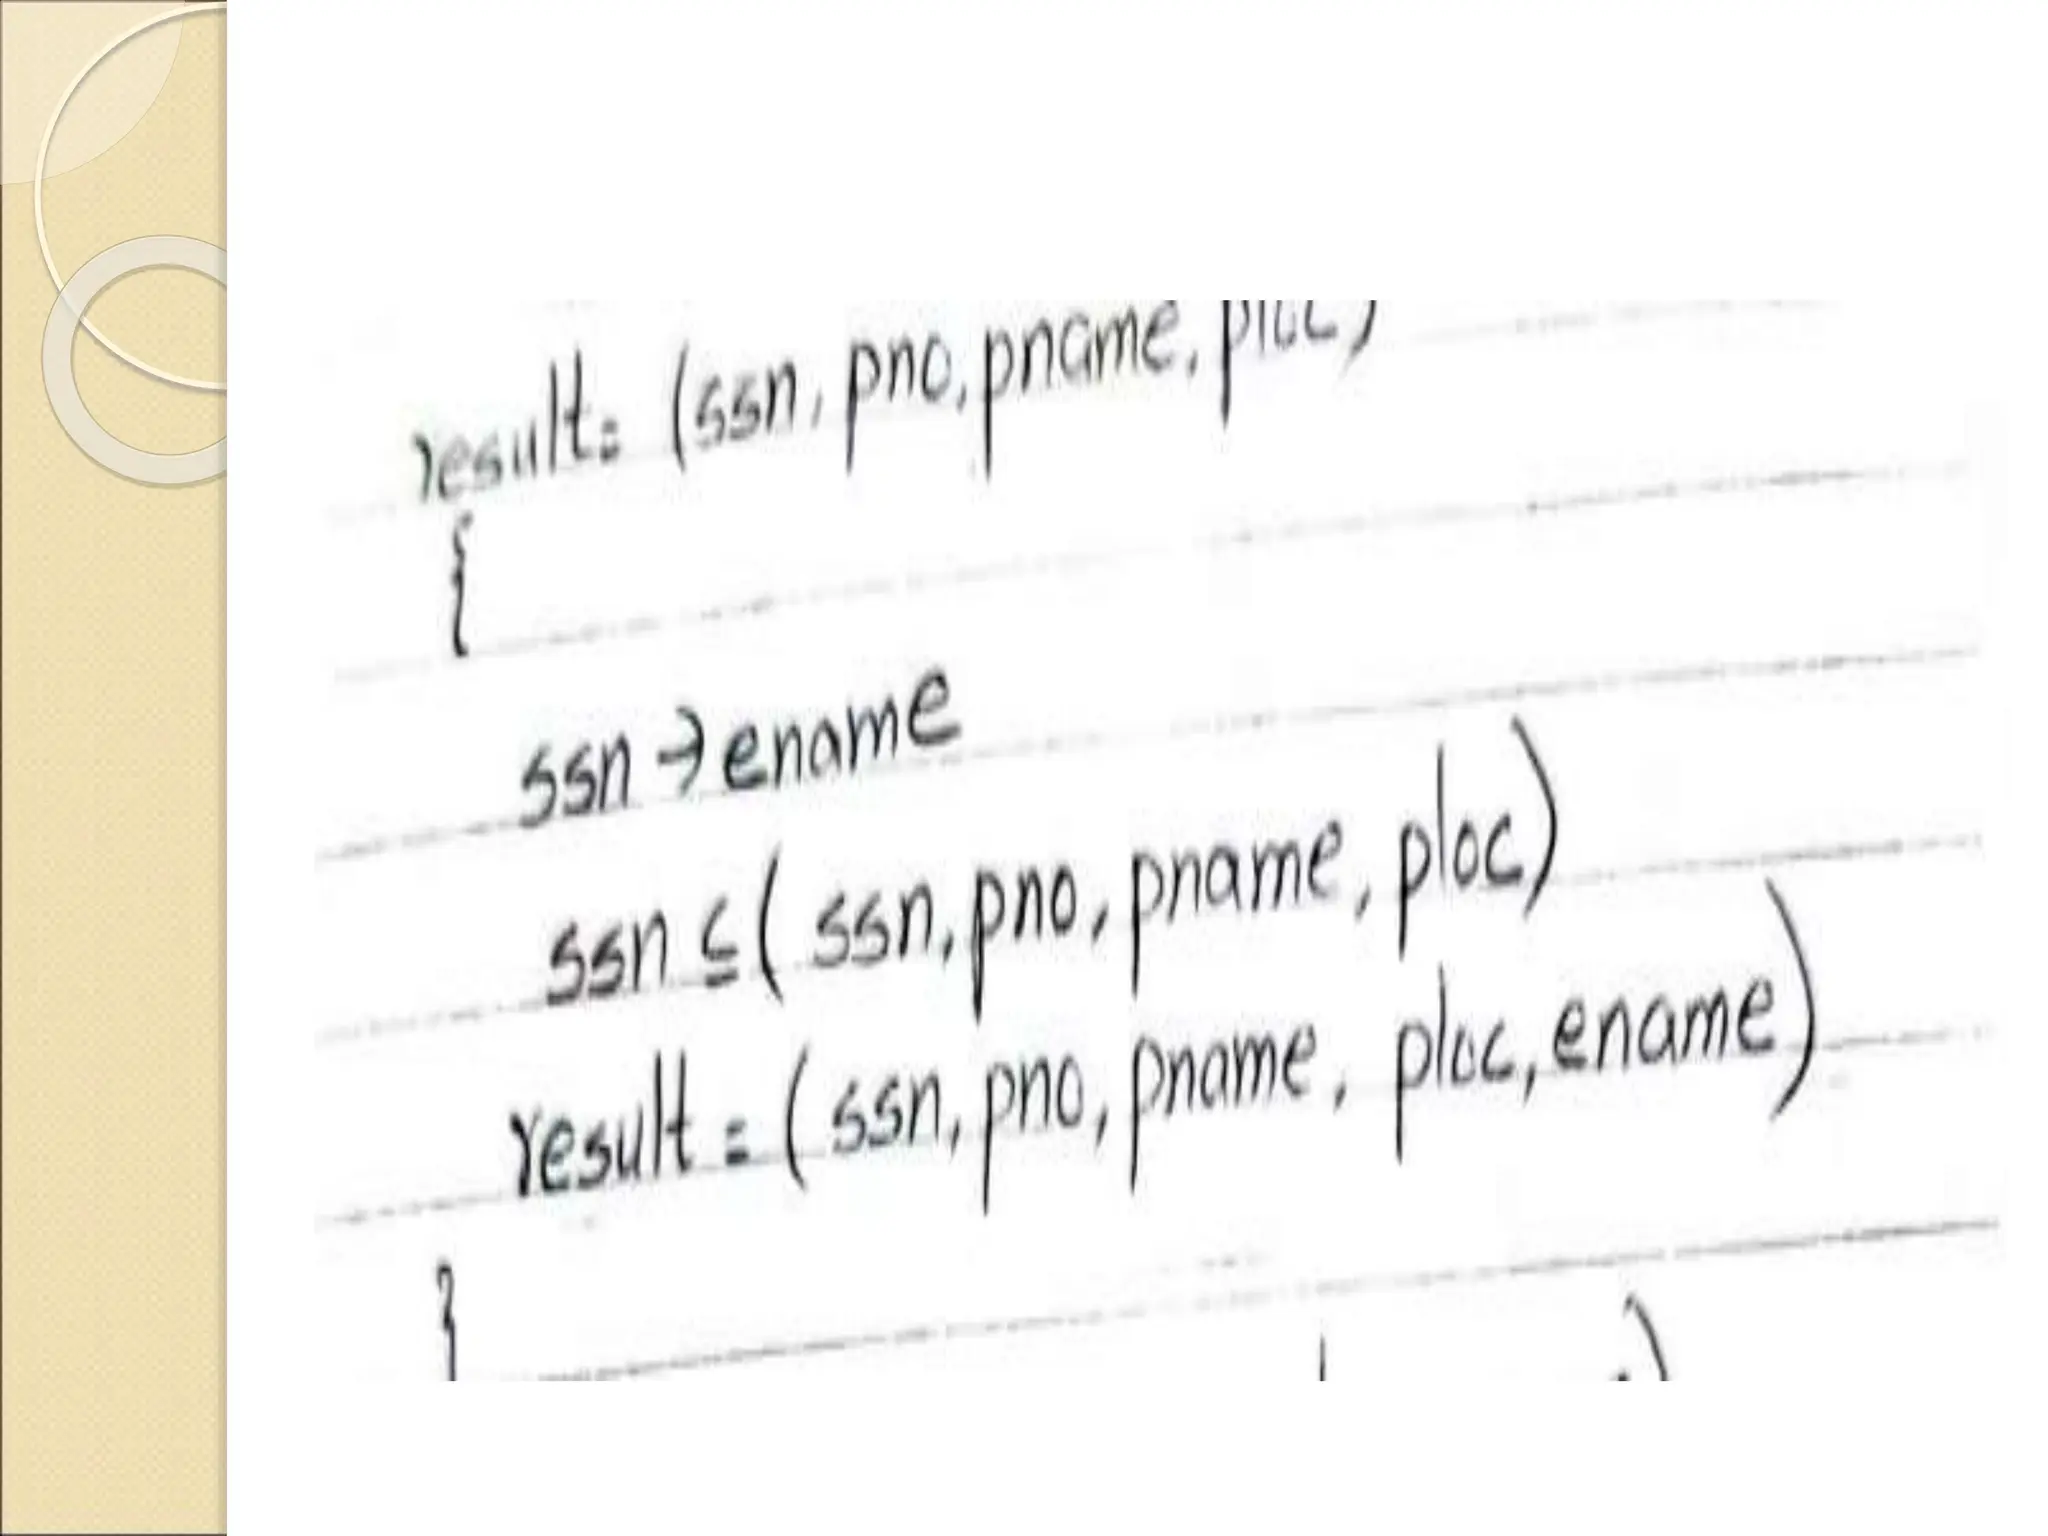 result= (ssn, pno, pname, ploc)
{
ssn → ename
ssn ⊆ ( ssn, pno, pname, ploc)
result = ( ssn, pno, pname, ploc, ename)
}